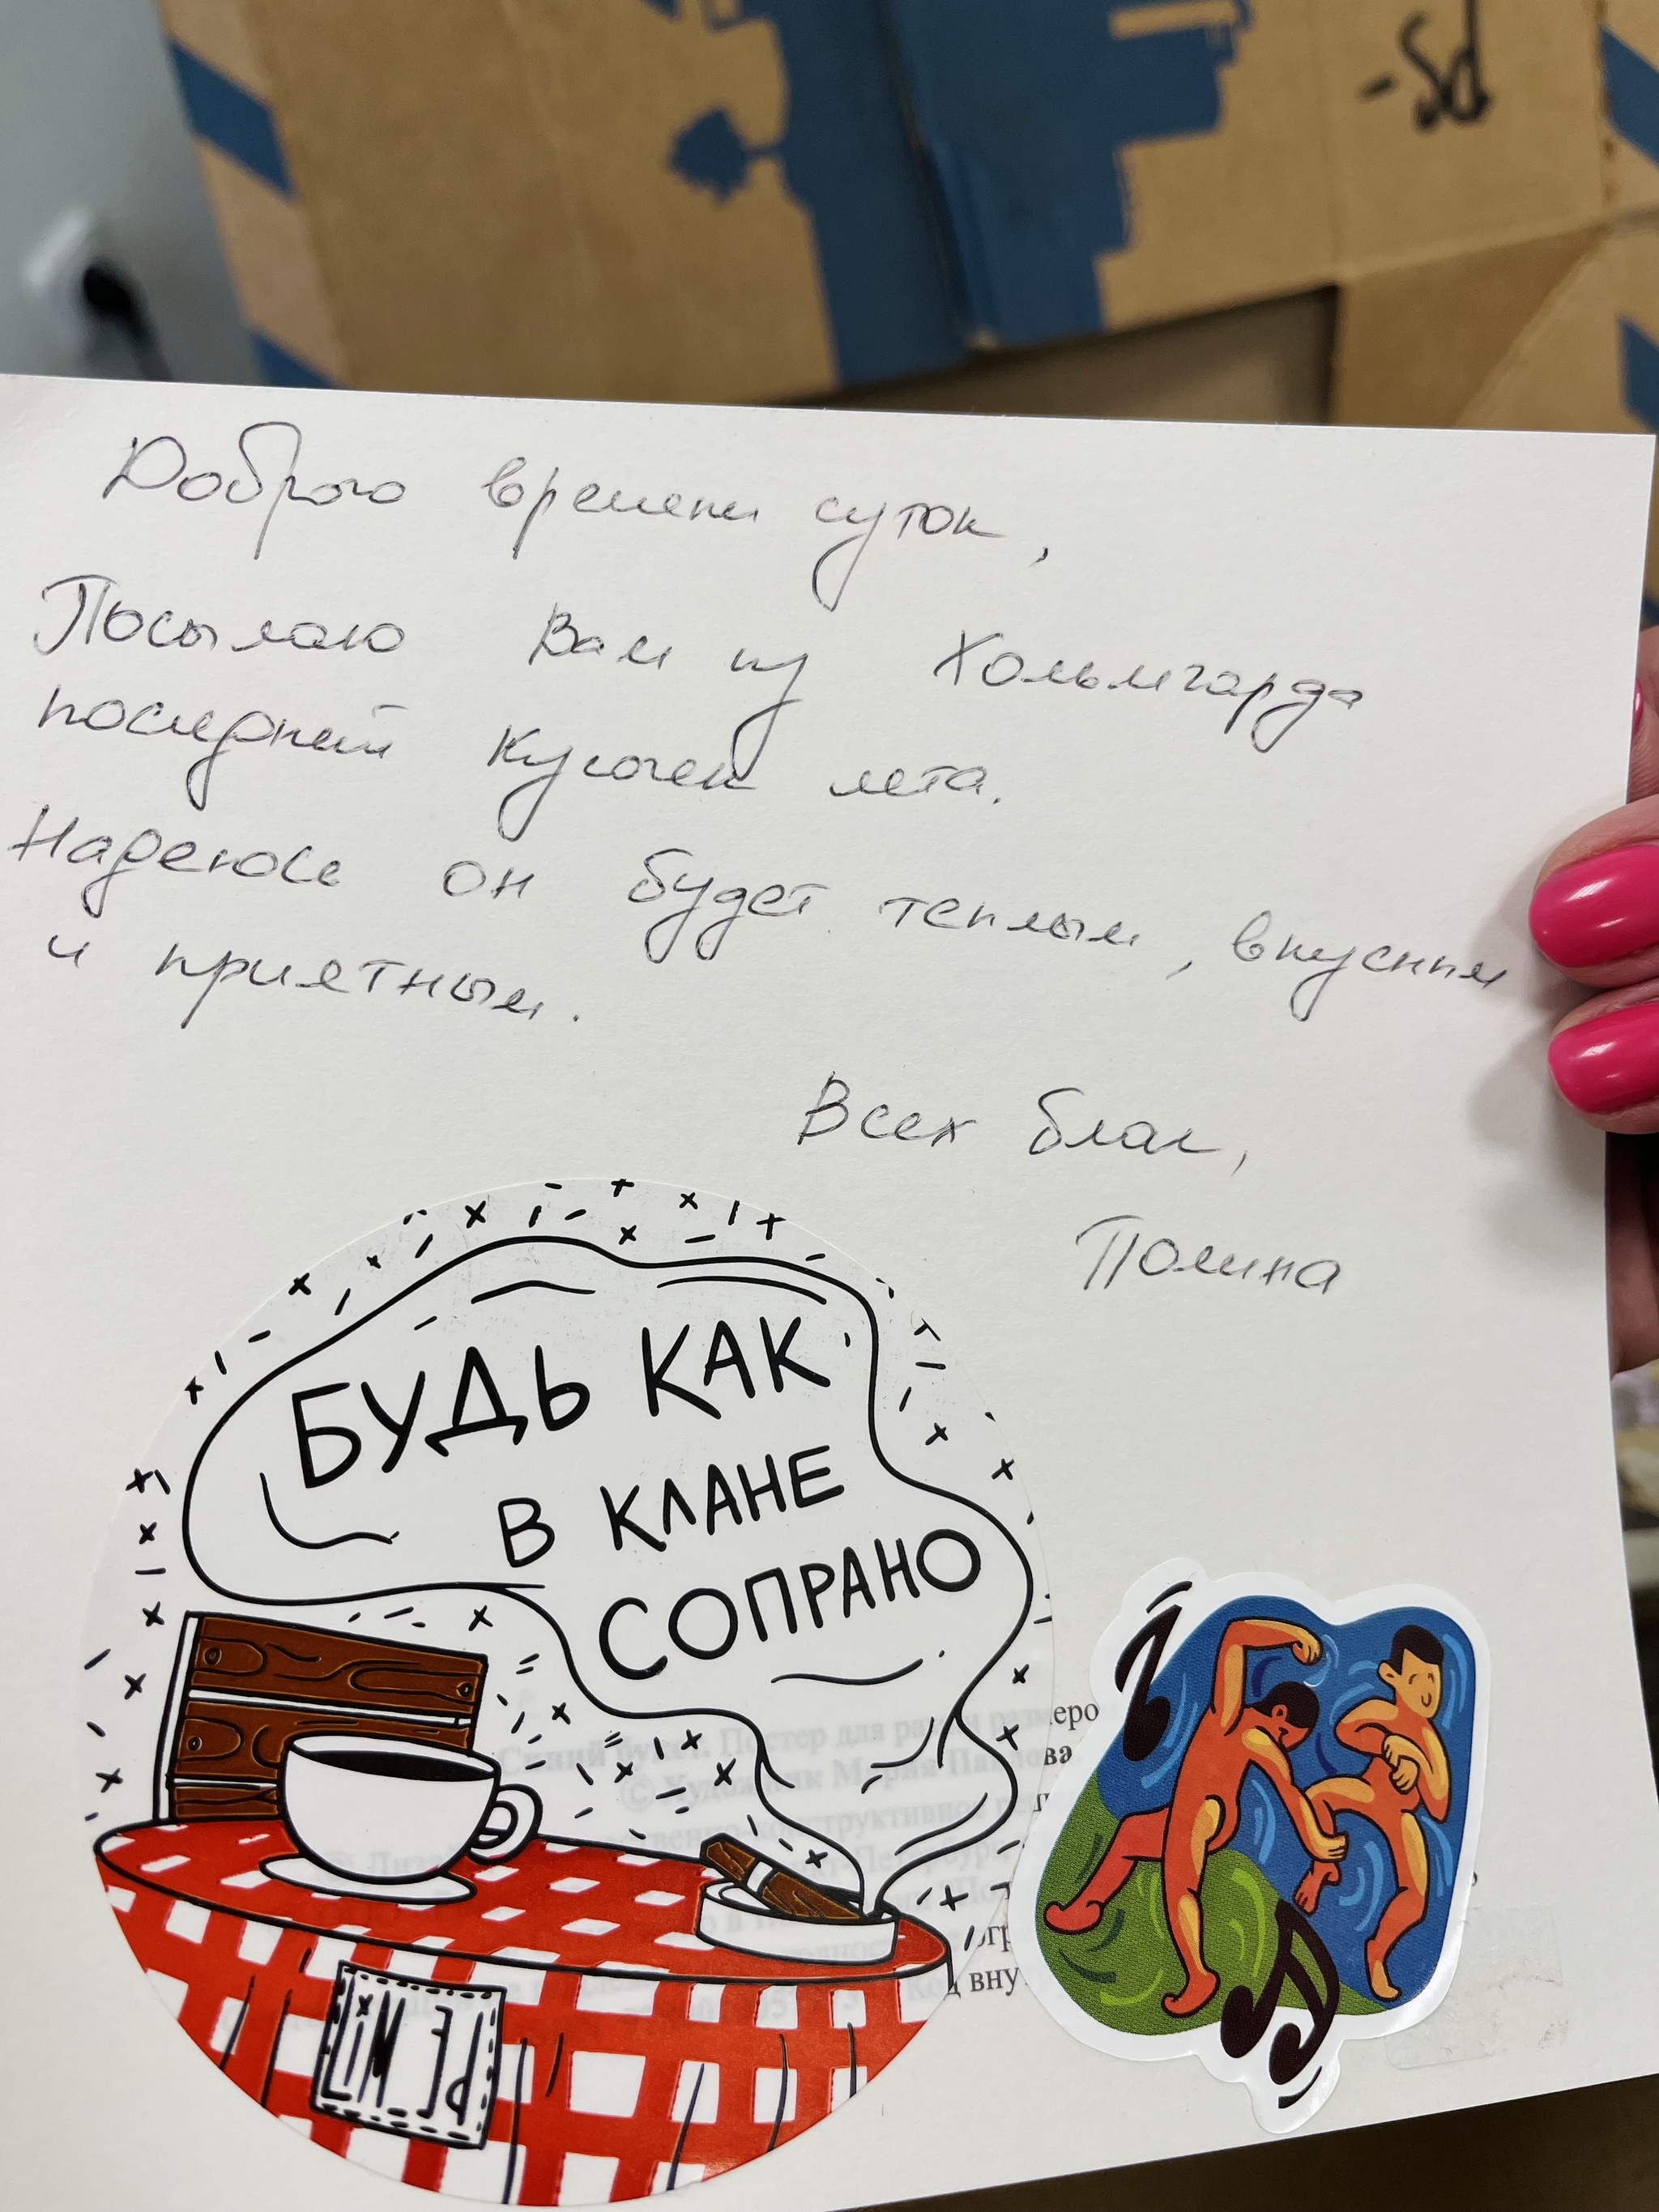 Доброго времени суток,
Посылаю Вам из Хольмгарда
последний кусочек лета.
Надеюсь он будет теплым, вкусным
и приятным.
Всех благ,
Полина
БУДЬ КАК
В КЛАНЕ
СОПРАНО
Постер для
© Художник Мария
вну